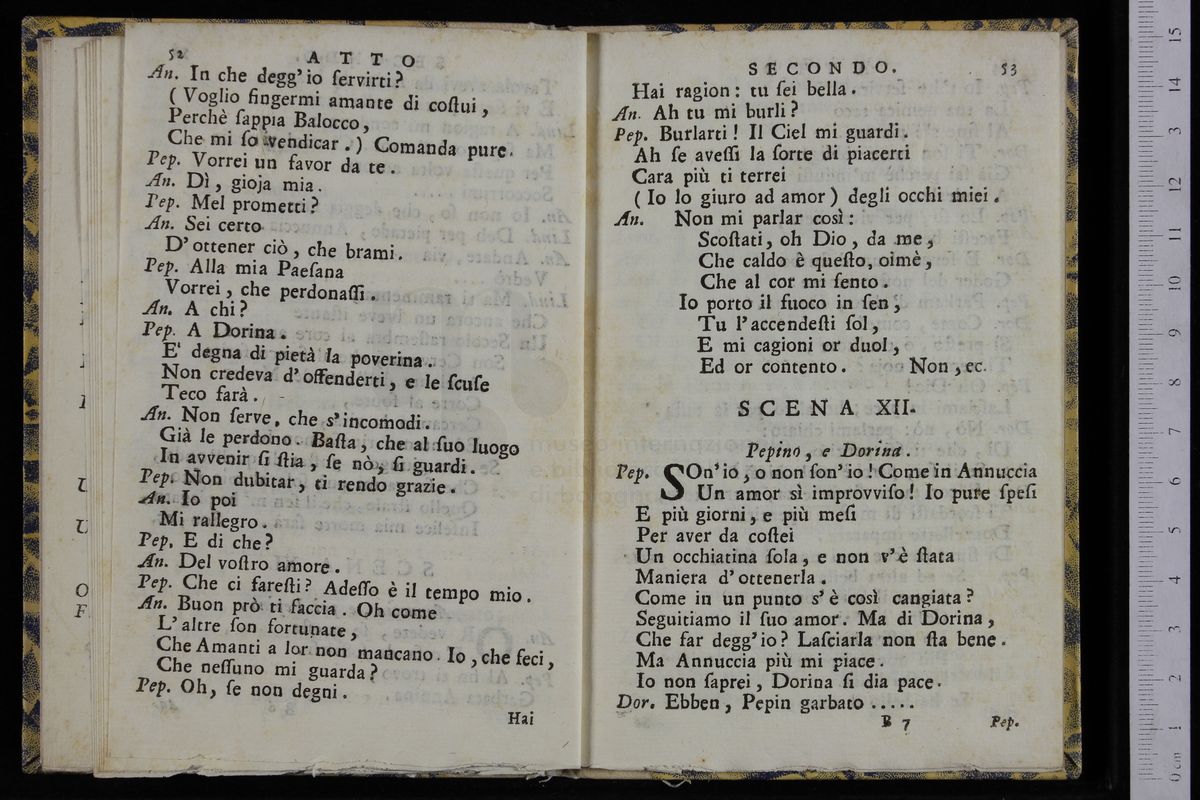 52 ATTO
An. In che degg' io ſervirti?
( Voglio fingermi amante di coſtui,
Perchè ſappia Balocco,
Che mi ſo vendicar.) Comanda pure.
Pep. Vorrei un favor da te.
An. Dì, gioja mia.
Pep. Mel prometti?
An. Sei certo
D' ottener ciò, che brami.
Pep. Alla mia Paeſana
Vorrei, che perdonaſſi.
An. A chi?
Pep. A Dorina.
E' degna di pietà la poverina.
Non credeva d' offenderti, e le ſcuſe
Teco farà.
An. Non ſerve, che s' incomodi.
Già le perdono. Baſta, che al ſuo luogo
In avvenir ſi ſtia, ſe nò, ſi guardi.
Pep. Non dubitar, ti rendo grazie.
An. Io poi
Mi rallegro.
Pep. E di che?
An. Del voſtro amore.
Pep. Che ci fareſti? Adeſſo è il tempo mio.
An. Buon prò ti faccia. Oh come
L' altre ſon fortunate,
Che Amanti a lor non mancano. Io, che feci,
Che neſſuno mi guarda?
Pep. Oh, ſe non degni.
Hai
SECONDO. 53
Hai ragion: tu ſei bella.
An. Ah tu mi burli?
Pep. Burlarti! Il Ciel mi guardi.
Ah ſe aveſſi la ſorte di piacerti
Cara più ti terrei
( Io lo giuro ad amor) degli occhi miei.
An. Non mi parlar così:
Scoſtati, oh Dio, da me,
Che caldo è queſto, oimè,
Che al cor mi ſento.
Io porto il fuoco in ſen,
Tu l' accendeſti ſol,
E mi cagioni or duol,
Ed or contento. Non, ec.
SCENA XII.
Pepino, e Dorina.
Pep. SOn' io, o non ſon' io! Come in Annuccia
Un amor sì improvviſo! Io pure ſpeſi
E più giorni, e più meſi
Per aver da coſtei
Un occhiatina ſola, e non v' è ſtata
Maniera d' ottenerla.
Come in un punto s' è così cangiata?
Seguitiamo il ſuo amor. Ma di Dorina,
Che far degg' io? Laſciarla non ſta bene.
Ma Annuccia più mi piace.
Io non ſaprei, Dorina ſi dia pace.
Dor. Ebben, Pepin garbato .....
B 7 Pep.